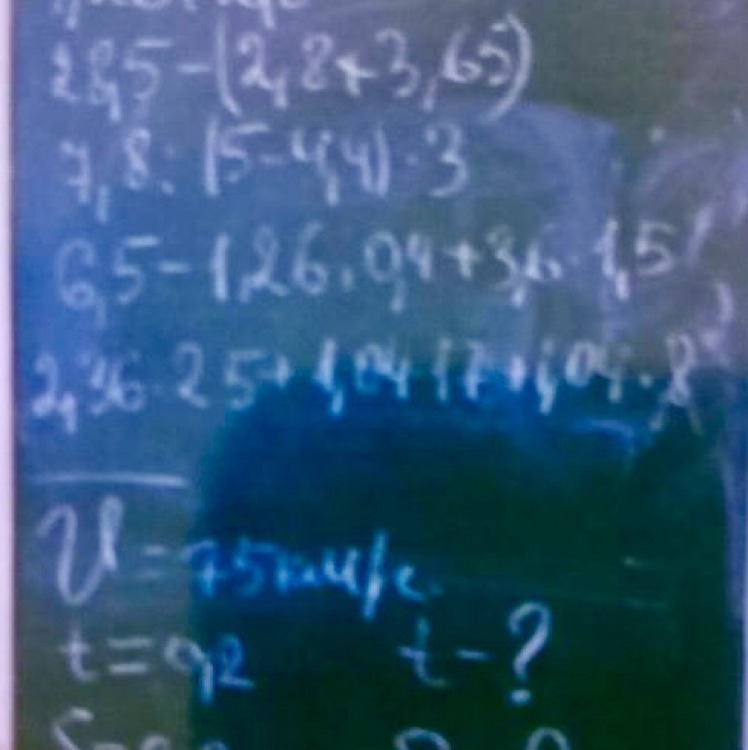 28,5-(2,8+3,65)
7,8:(5-4,4)·3
6,5-1,26·0,4+3,6·1,5
2,36·25+1,04·17+1,04·8
V=75км/с
t=0,2 t-?